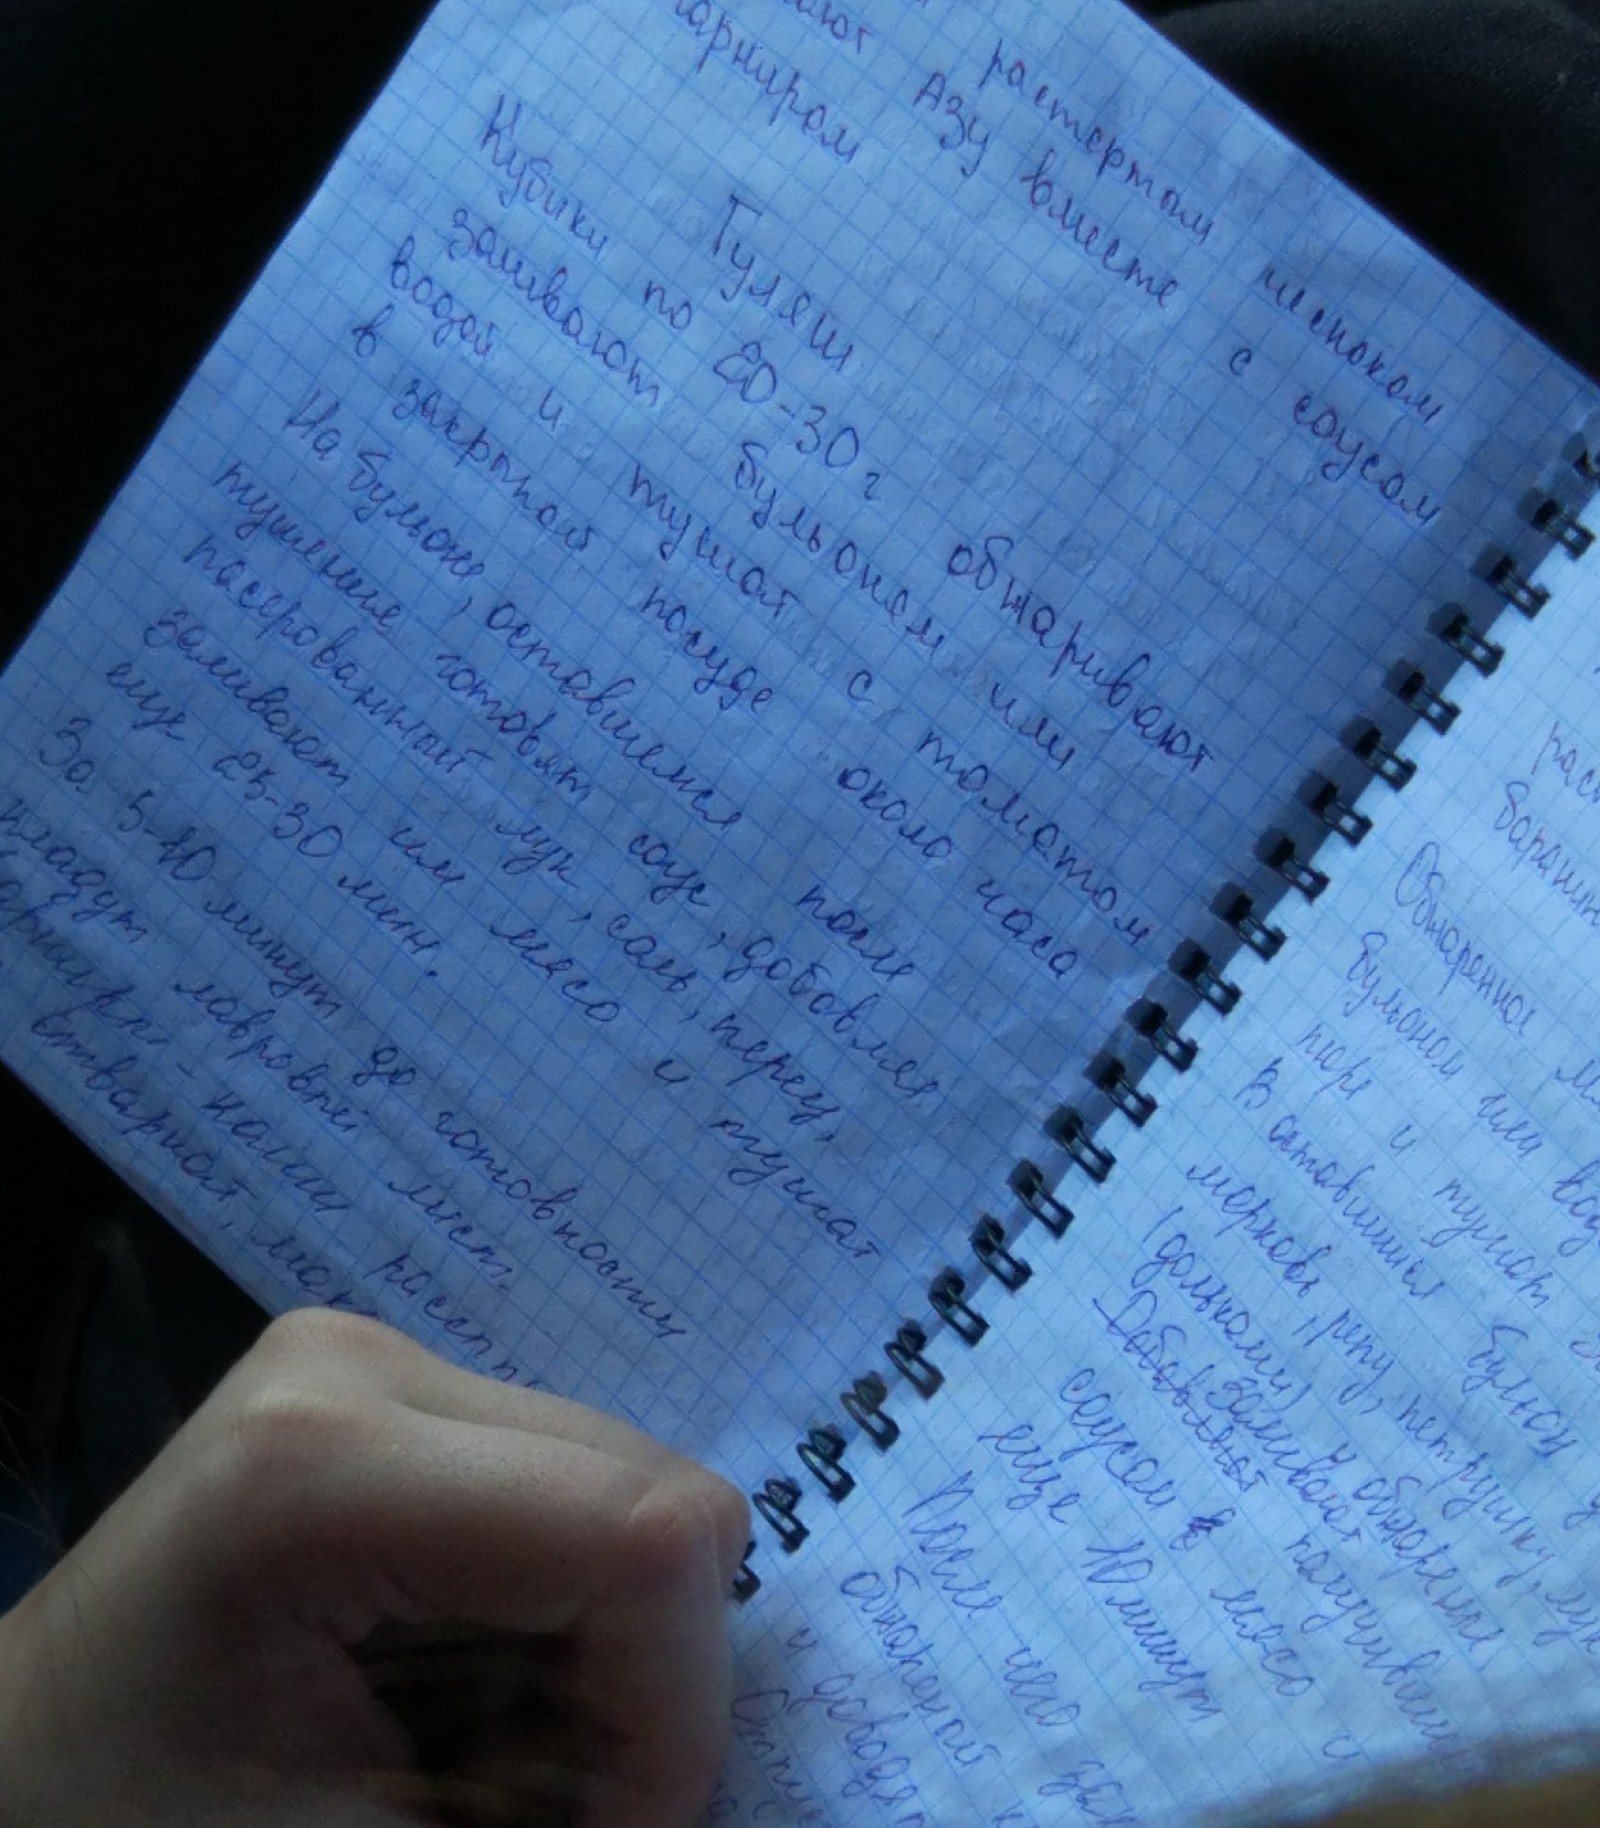 растертым чесноком
Азу вместе с соусом
гарниром
Гуляш
Кубики по 20-30 г обжаривают
заливают бульоном или
водой и тушат с томатом
в закрытой посуде около часа
На бульоне, оставшемся после
тушение готовят соус, добавляя
пасерованный лук, соль, перец,
заливают им мясо и тушат
еще 25-30 мин.
За 5-10 минут до готовности
кладут лавровый лист.
Гарниры - каши рассып
отварной, мак
Обжаренное
бульоном или вод
пюре и тушат
В оставшийся бульон
морковь, репу, петрушку, лук
(дольками) и обжарение
Добавляют заливают получивши
соусом мясо и
еще 10 минут
После чего
обжареной
и доводя